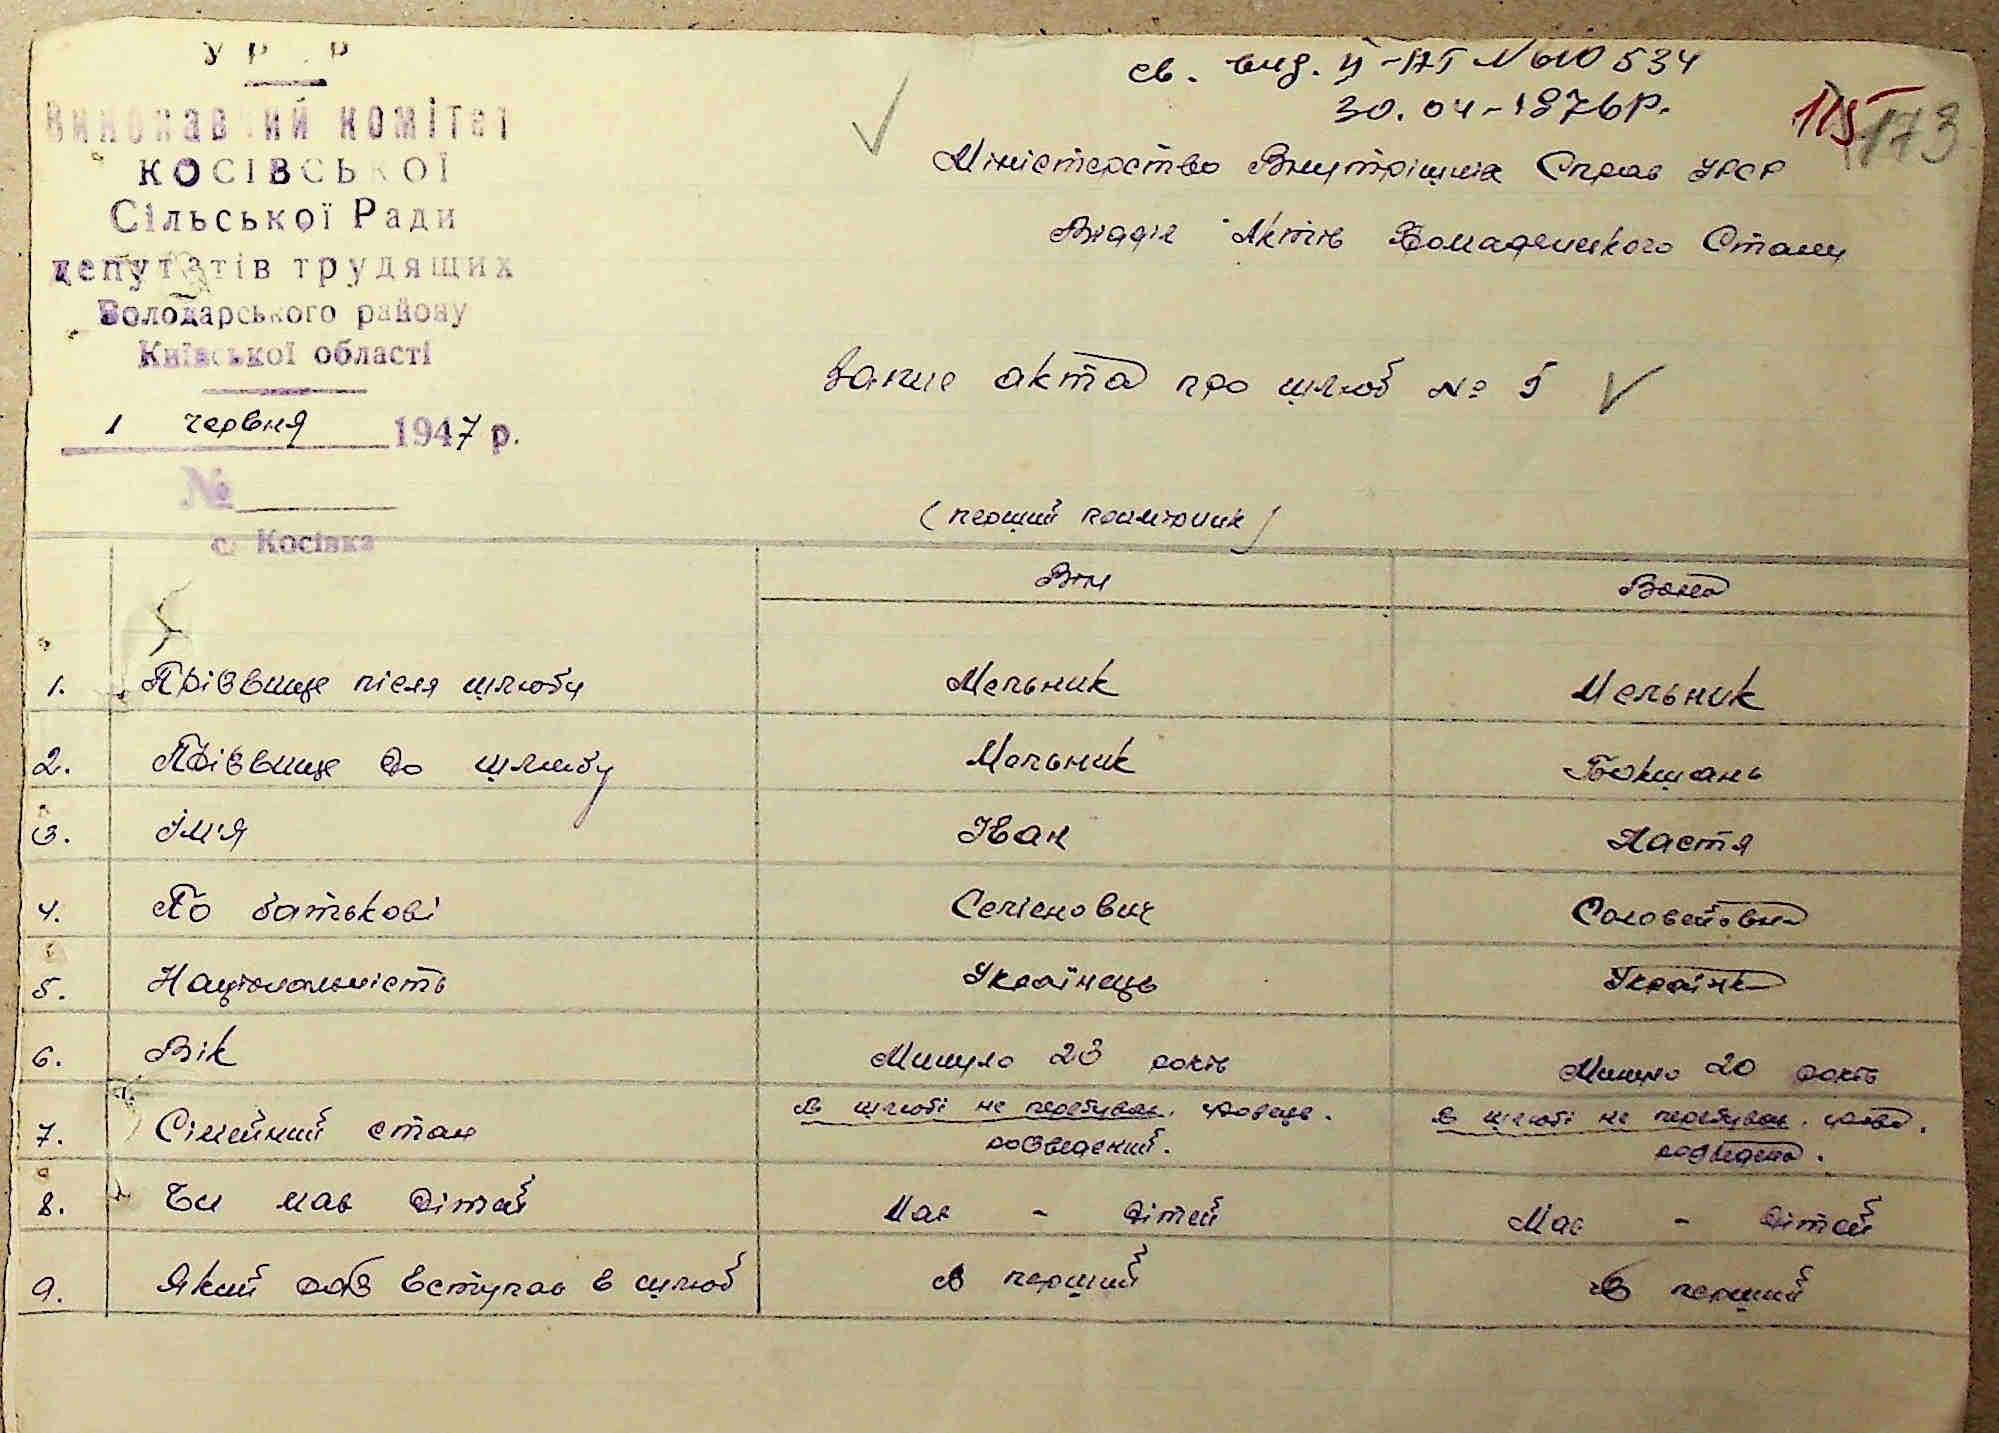 У Р Р
Виконавчий комітет
КОСІВСЬКОЇ
Сільської Ради
депутатів трудящих
Володарського району
Київської області
1 червня 1947 р.
№
с. Косівка
св. вид. ІІ-НГ № 610534
30.04-1976 р.
115 173
Міністерство Внутрішніх Справ УРСР
Відділ Актів Громадянського Стану
Запис акта про шлюб № 5
(перший примірник)
Він Вона
1. Прізвище після шлюбу Мельник Мельник
2. Прізвище до шлюбу Мельник Бокшань
3. Ім'я Іван Настя
4. По батькові Соловейовна
5. Національність Українець Українк
6. Вік Минуло 23 років Минуло 20 років
7. Сімейний стан В шлюбі не перебував. вдовець. розведений. В шлюбі не перебував. вдова. розведена.
8. Чи мав дітей Має - дітей Має - дітей
9. Який раз вступає в шлюб В перший В перший